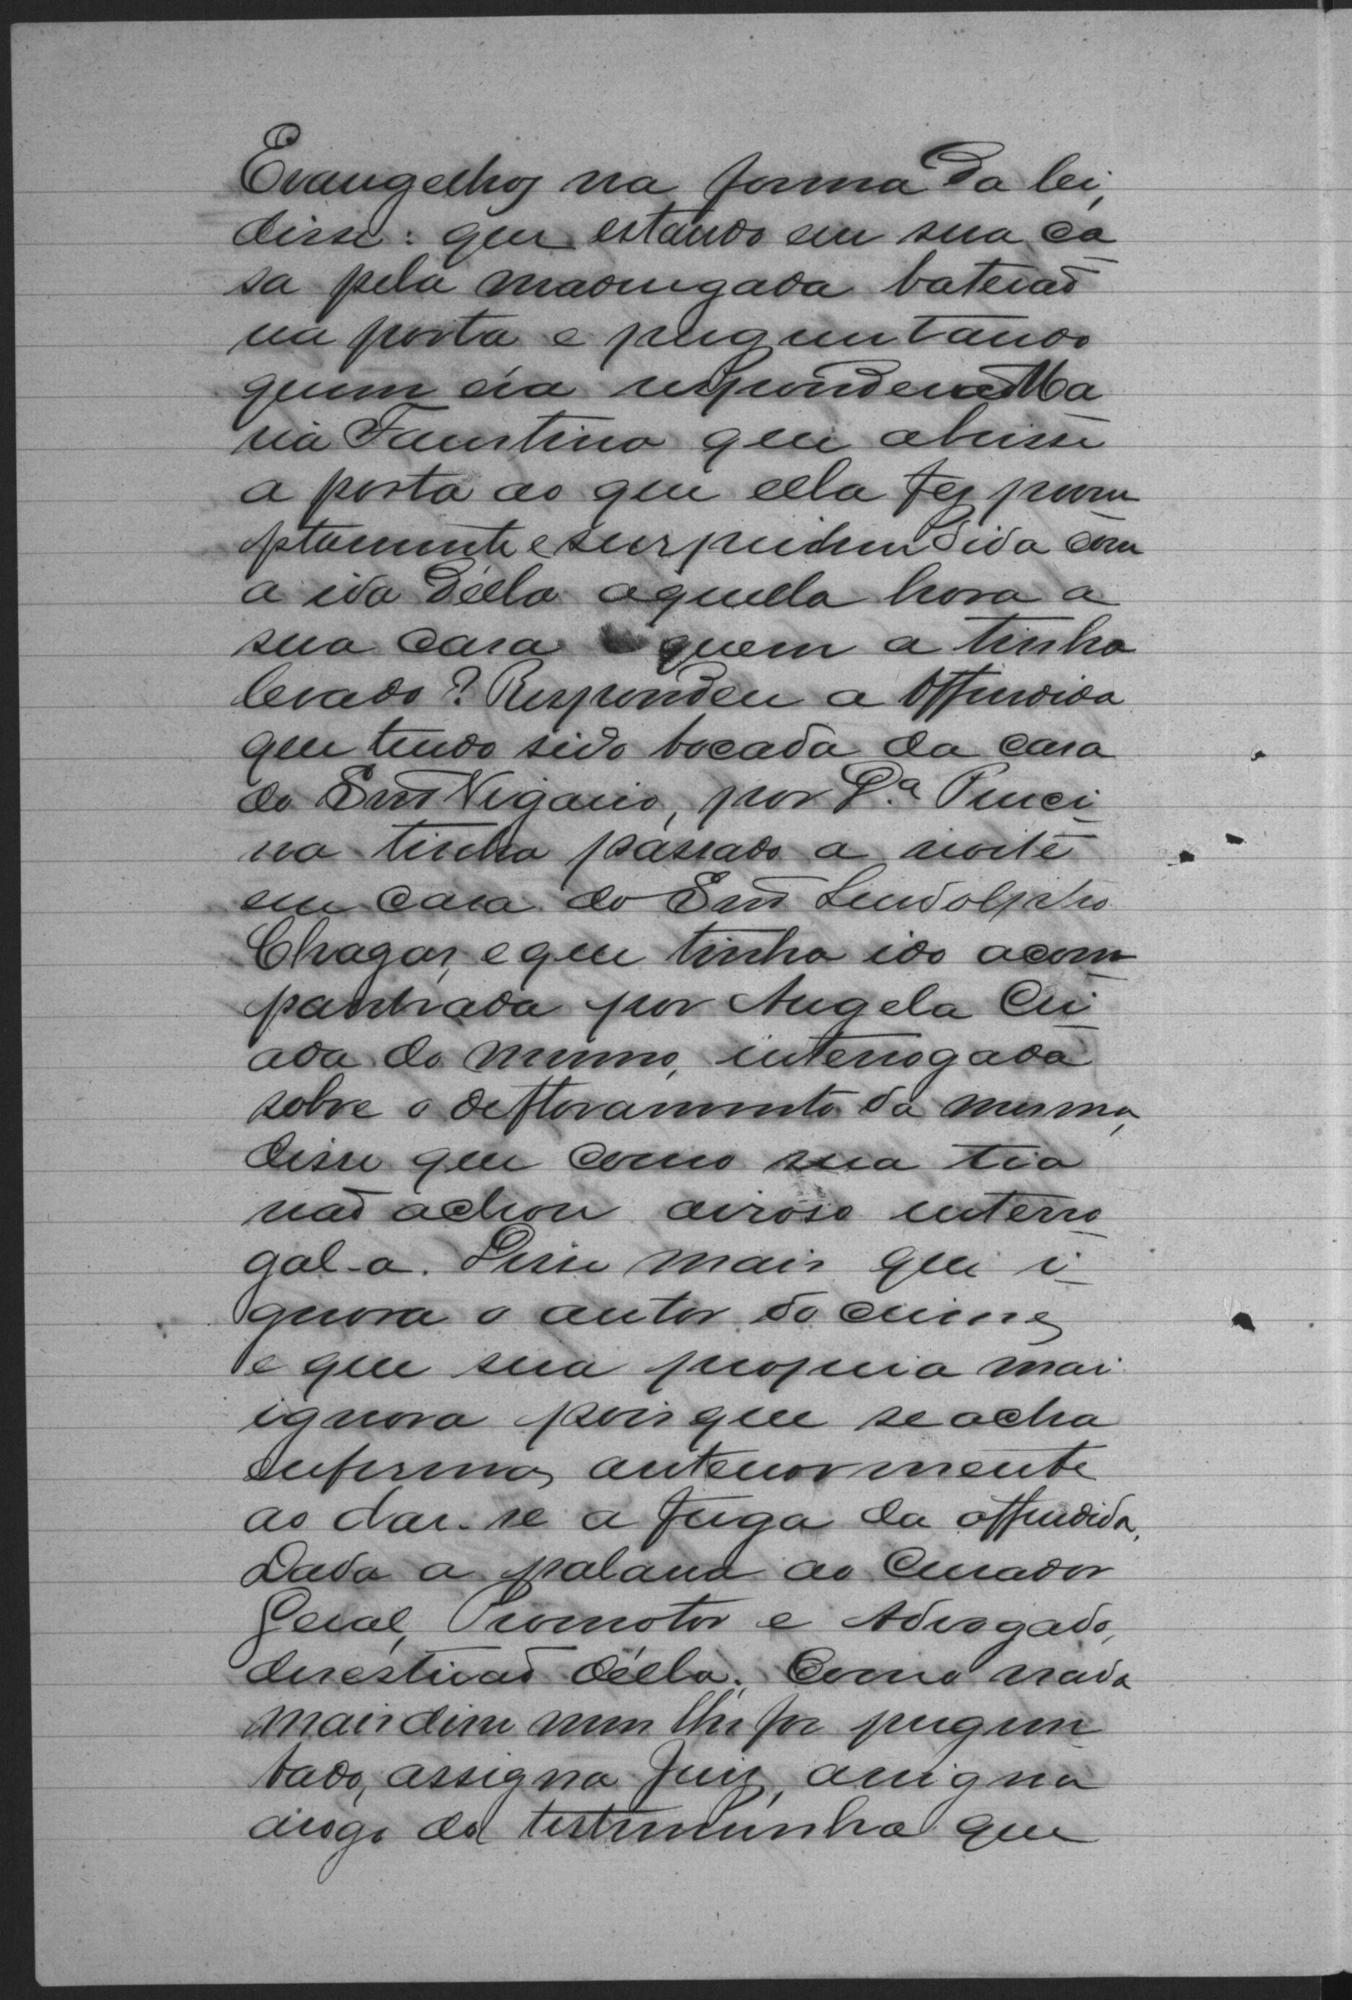 Evangelhos na forma da lei,
disse: que estando em sua ca
sa pela madrugada baterão
na porta e preguntando
quem era responderão Ma
ria Faustina que abrisse
a porta ao que ella fez prom
ptamente e surprehendida com
a ida d'ella aquella hora a
sua casa quem a tinha
levado? Respondeu a offendida
que tendo sido botada da casa
do Snr Vigario, por D.ª Princi
na tinha passado a noite
em casa do Snr Lindolpho
Chagas, e que tinha ido acom
panhada por Angela Cri
ada do mesmo, interrogada
sobre o defloramento da mesma,
disse que como sua tia
não achou airoso interro
gal-a. Disse mais que i
gnora o autor do crime,
e que sua propria mai
ignora pois que se acha
enferma, anteriormente
ao dar-se a fuga da offendida.
Dada a palavra ao Curador
Geral, Promotor e Advogado,
desestirão d'ella. Como nada
mais disse nem lhe foi pregun
tado, assigna Juiz, assigna
arogo da testemunha que